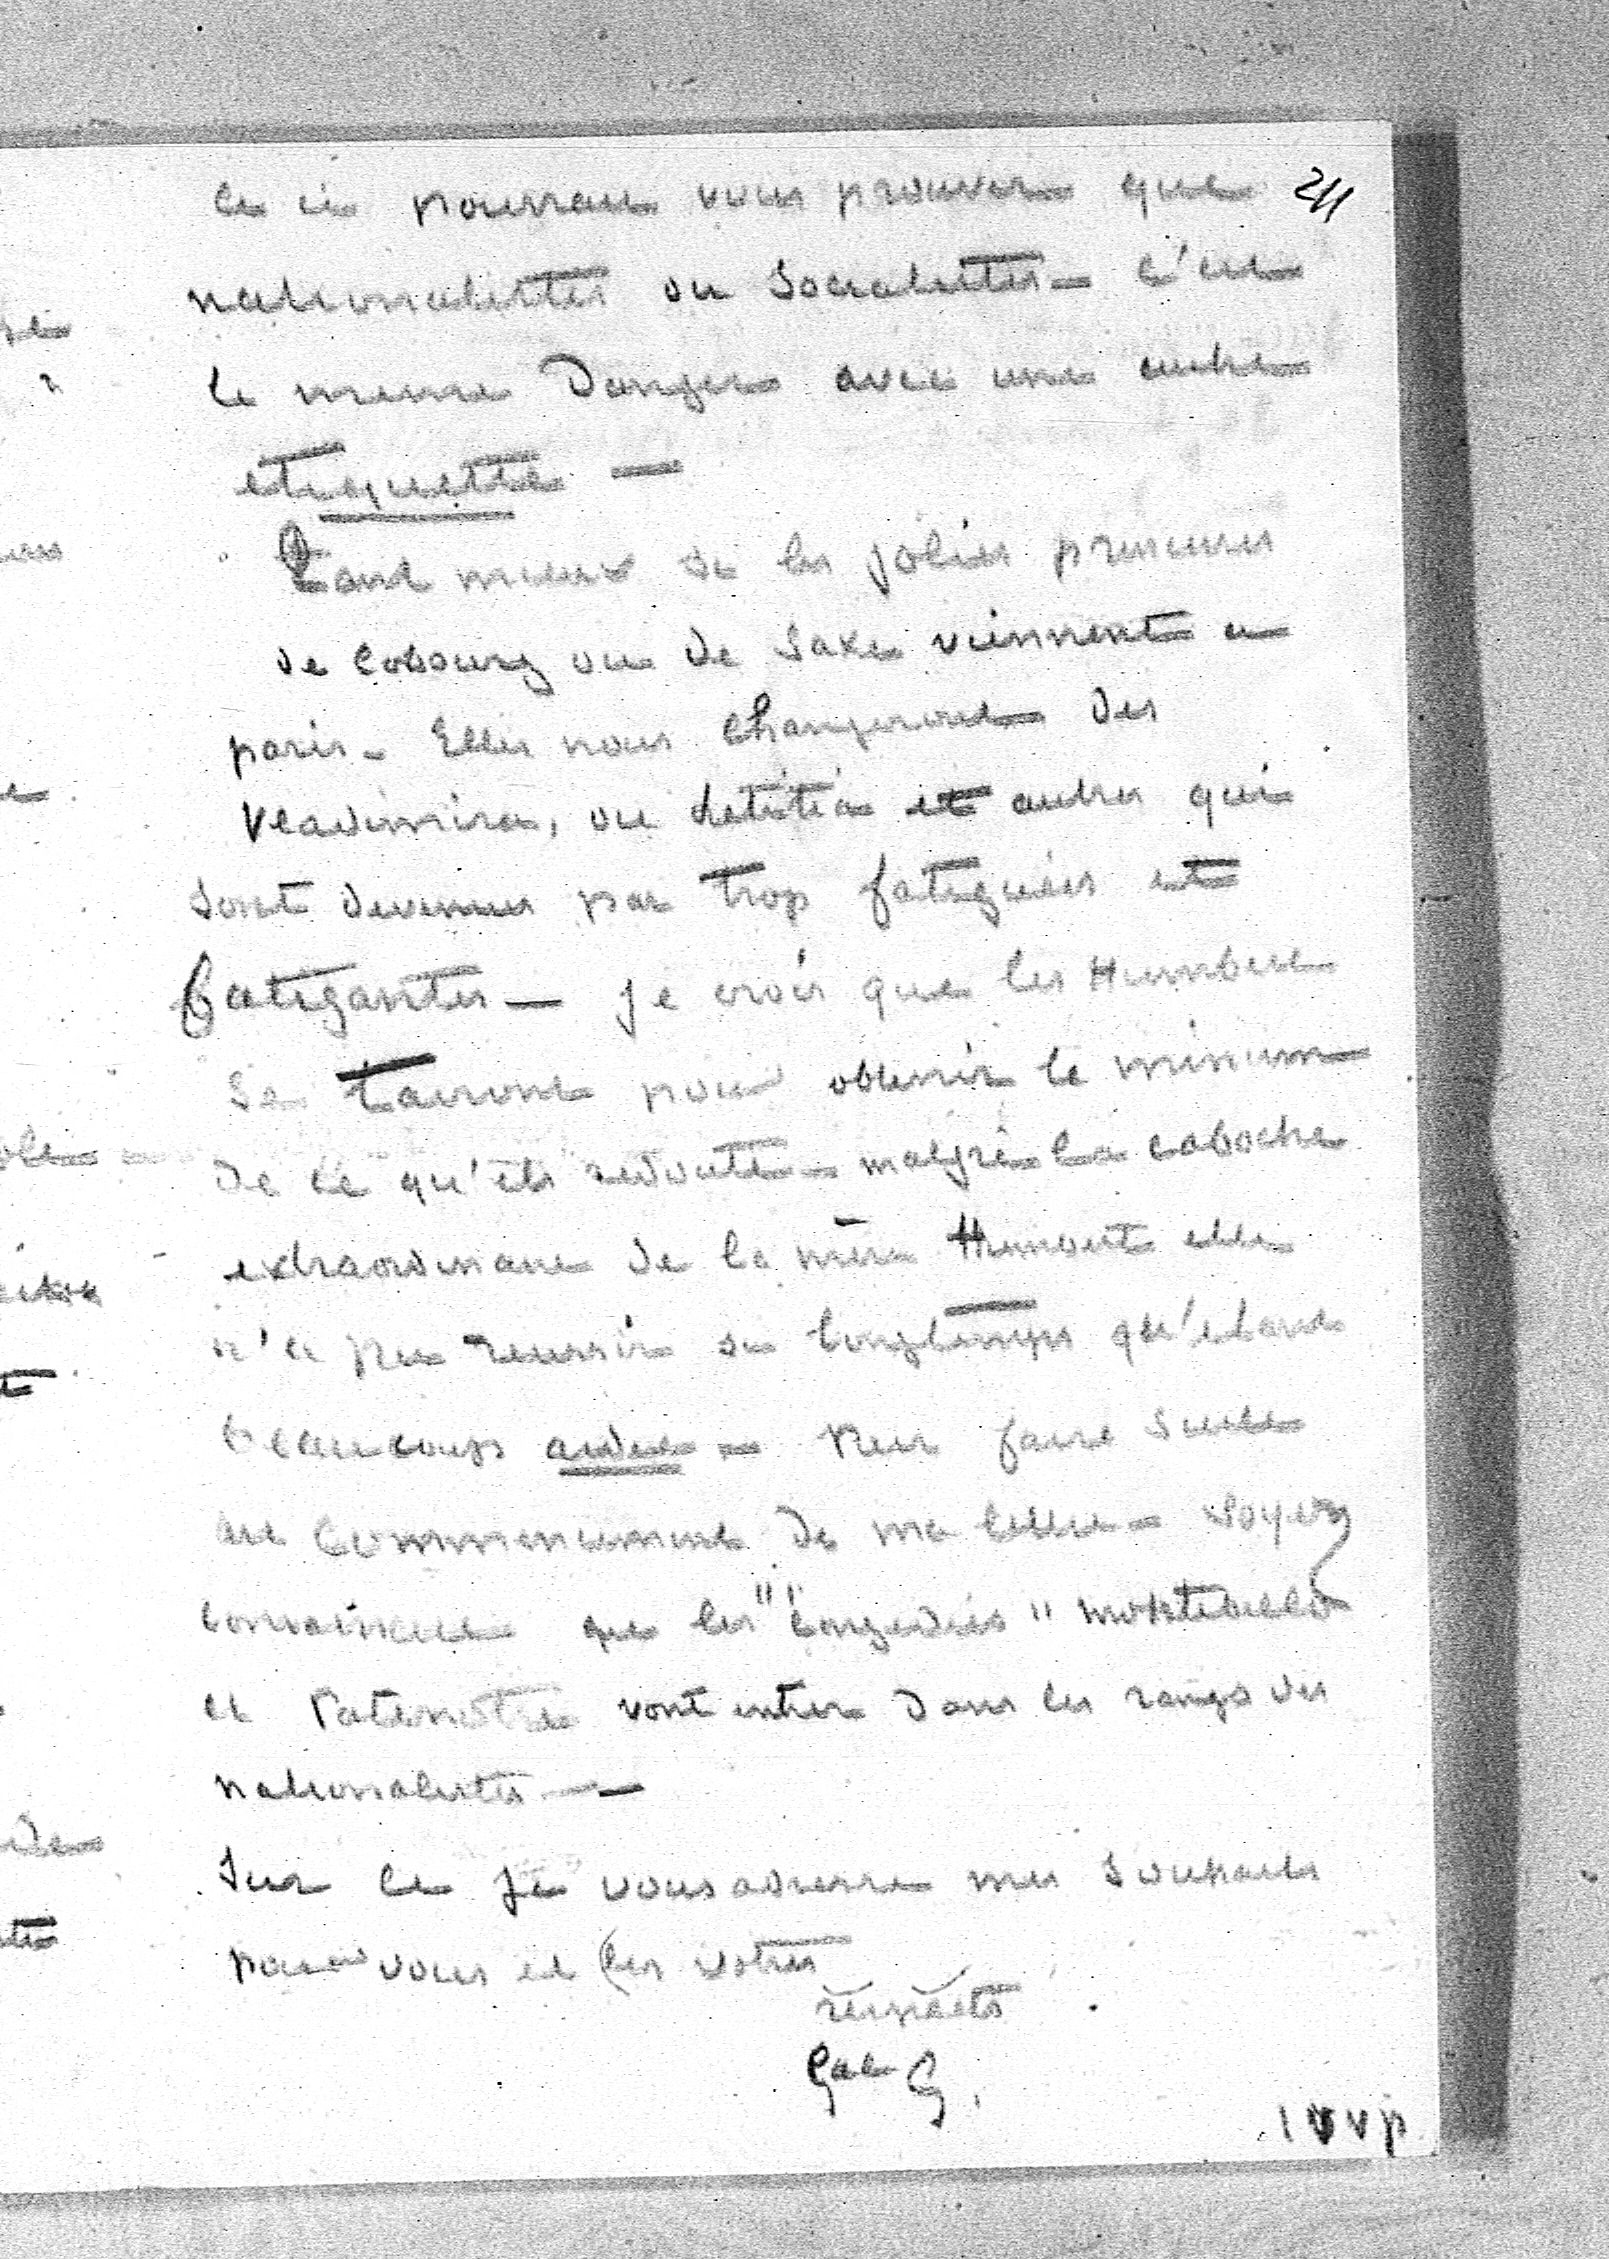 ce ci pourrait vous prouver que 211
nationalistes ou Socialistes - c'est
le meme Danger avec une autre
etiquette —
Tant mieux si les jolies princesses
de Cobourg ou de Saxe viennent a
paris - Elles nous Changeront des
Vladimira, ou Letitia et autres qui
sont devenues par trop fatiguées et
fatigantes — Je crois que les Humbert
se tairont pour obtenir le minimum
de ce qu'ils redoutte - malgré la caboche
extraordinaire de la mère Humbert elle
n'a pu reussir si longtemps qu'etant
beaucoup aidée - Pour faire suite
au Commencement de ma lettre - Soyez
convaincu que les "Congediés" Montebello
et Patenotre vont entrer dans les rangs des
nationalistes —
Sur ce Je vous adresse mes Souhaits
pour vous et les votres
respects
Gal G.